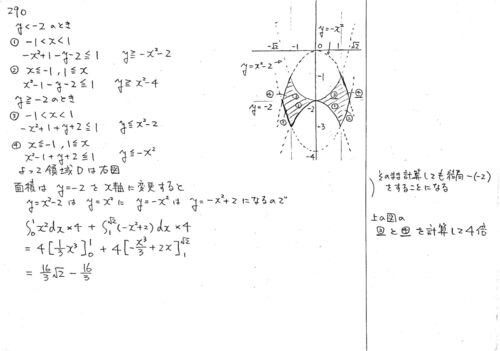 290
y<-2のとき
① -1<x<1
-x²+1-y-2≦1　y≧-x²-2
② x≦-1, 1≦x
x²-1-y-2≦1　y≧x²-4
y≧-2のとき
③ -1<x<1
-x²+1+y+2≦1　y≦x²-2
④ x≦-1, 1≦x
x²-1+y+2≦1　y≦-x²
よって領域Dは右図
面積は y=-2をx軸に変更すると
y=x²-2は y=x²に y=-x²は y=-x²+2になるので
∫₀¹x²dx×4 + ∫₁^√2(-x²+2)dx×4
= 4[1/3x³]₀¹ + 4[-x³/3+2x]₁^√2
= 16/3√2 - 16/3
y=-x²
-√2 -1 0 1 √2
y=x²-2
-1
y=-2
-2
-3
-4
計算しても結局-(-2)
をすることになる
上の図の
③と④を計算して4倍